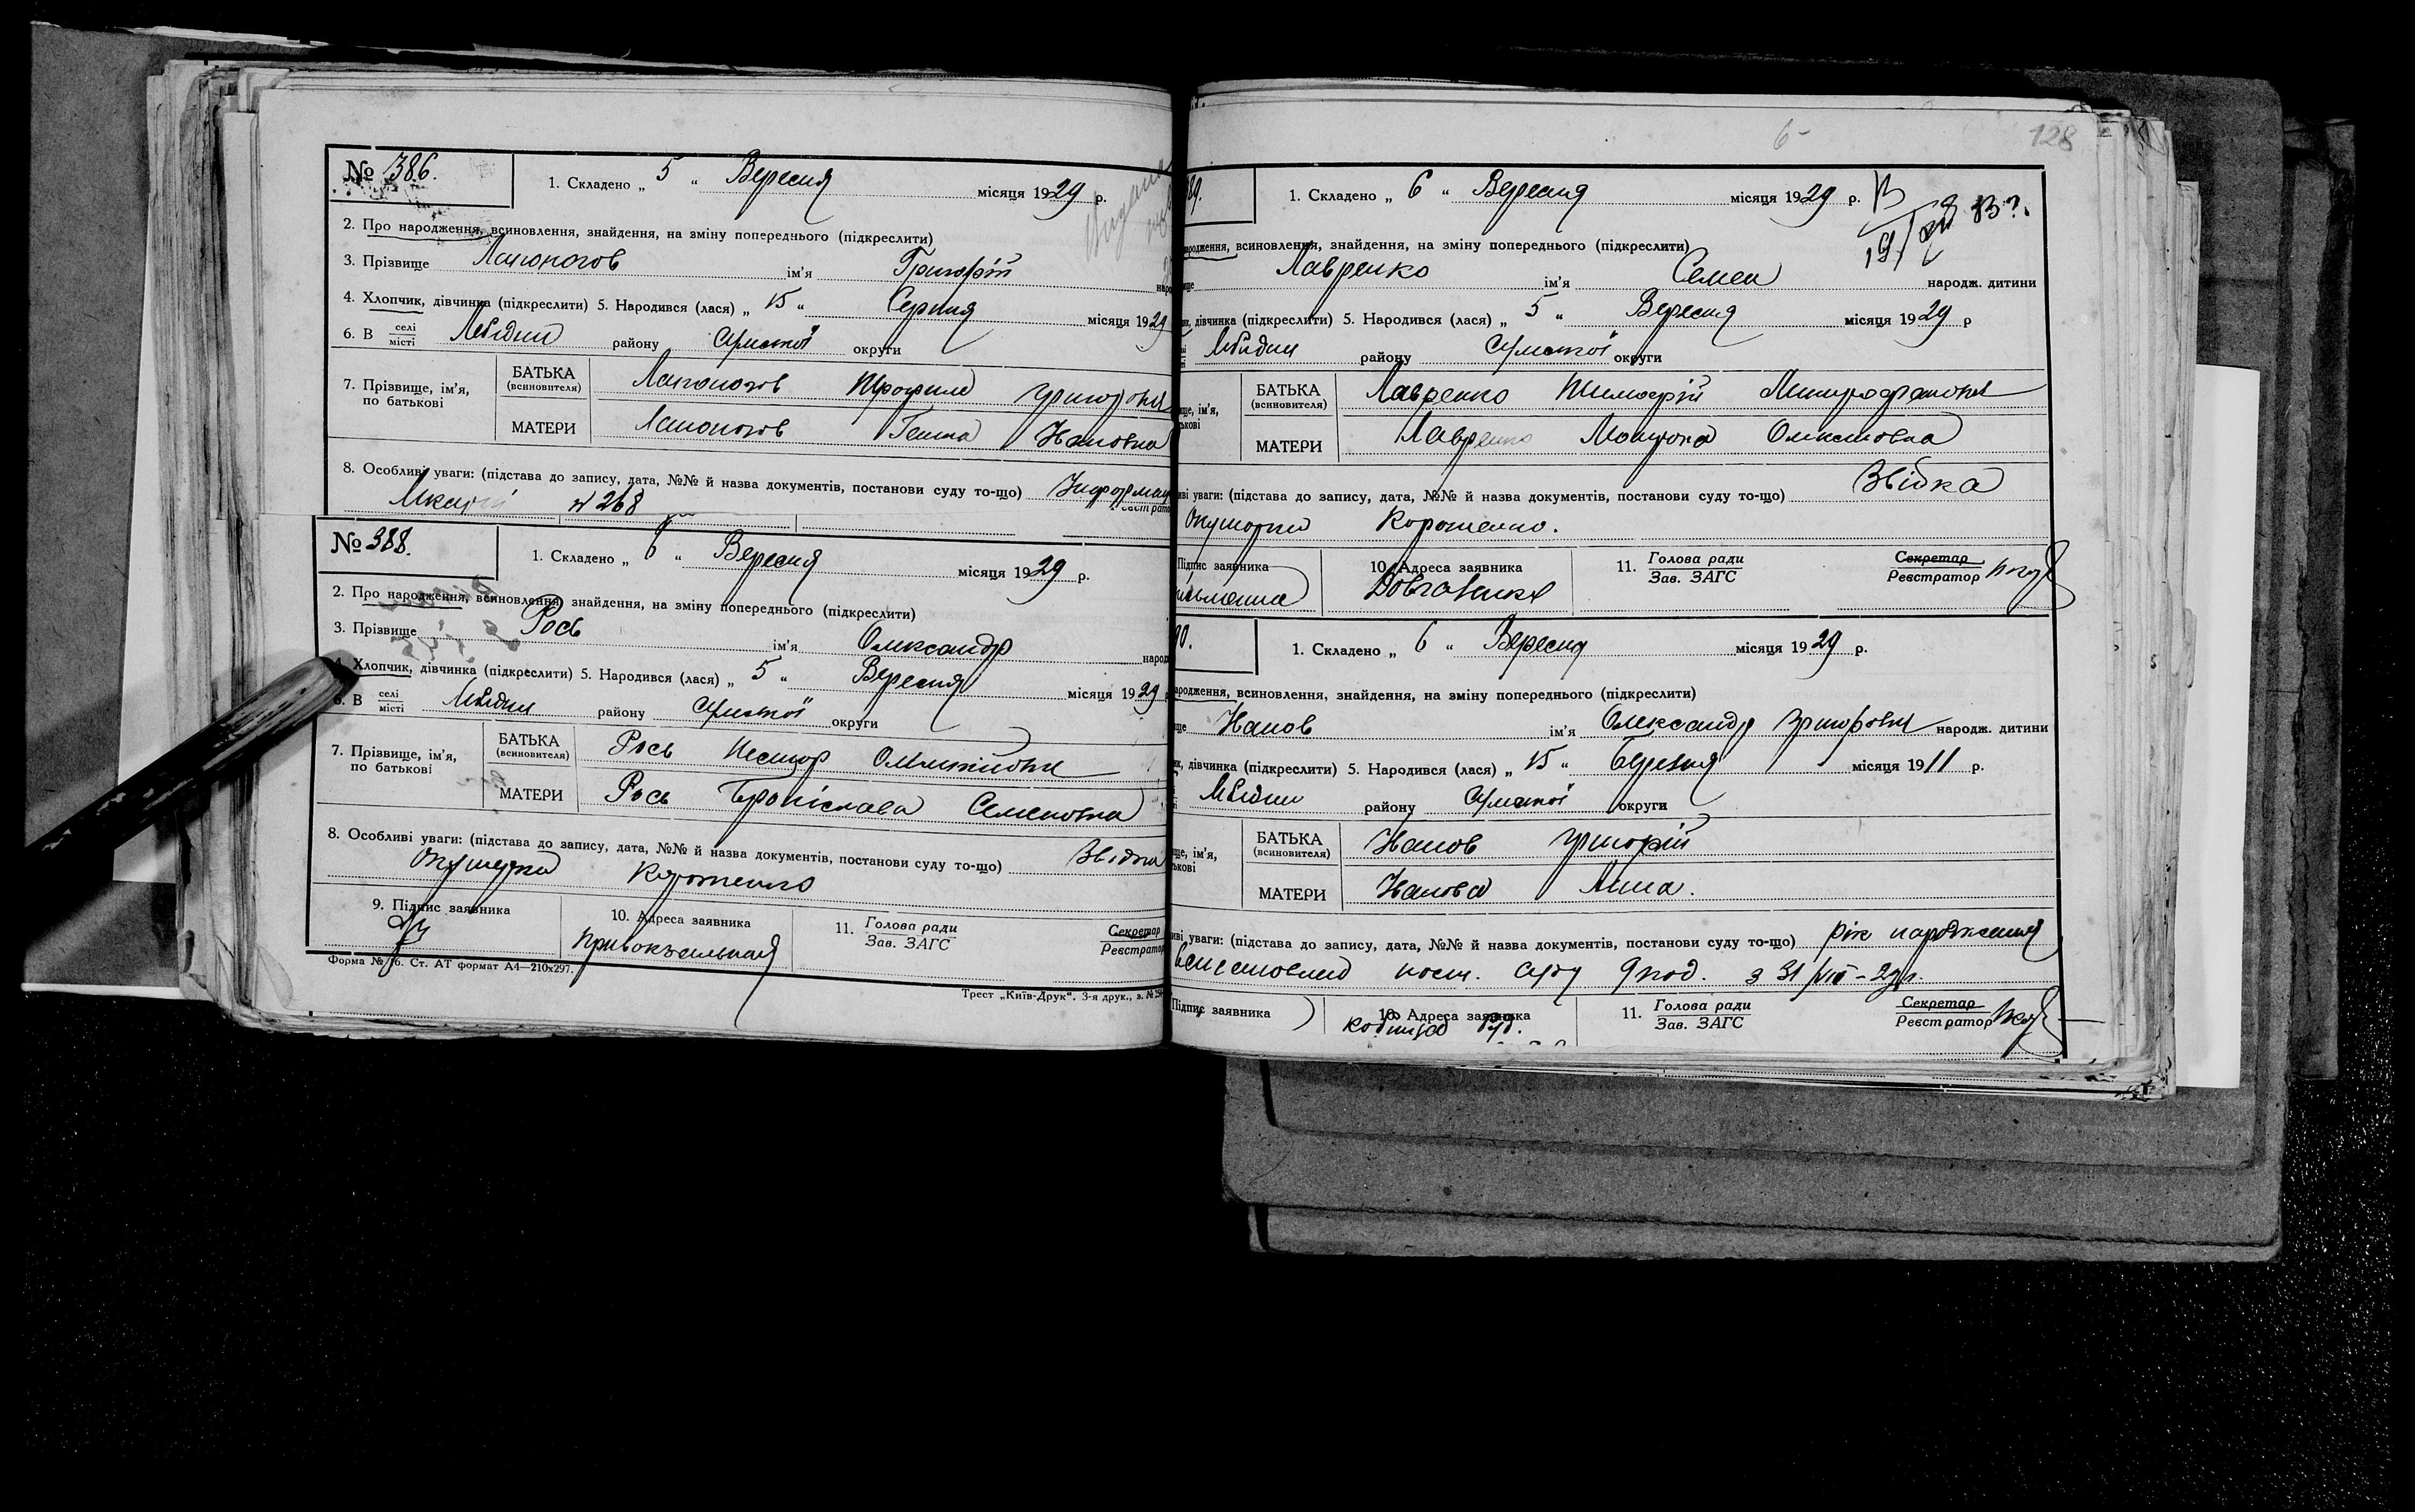 № 386.
1. Складено „ 5 “ Вересня місяця 1929 р.
2. Про народження, всиновлення, знайдення, на зміну попереднього (підкреслити)
3. Прізвище ім'я Григорій
4. Хлопчик, дівчинка (підкреслити) 5. Народився (лася) „ 15 “ Серпня місяця 1929
6. В селі місті Лебідин району Сумської округи
7. Прізвище, ім'я, по батькові
БАТЬКА (всиновителя) Трофим Григорович
МАТЕРИ Ганна Івановна
8. Особливі уваги: (підстава до запису, дата, №№ й назва документів, постанови суду то-що)
№ 268
№ 388.
1. Складено „ 6 “ Вересня місяця 1929 р.
2. Про народження, всиновлення, знайдення, на зміну попереднього (підкреслити)
3. Прізвище Рось ім'я Олександр
4. Хлопчик, дівчинка (підкреслити) 5. Народився (лася) „ 5 “ Вересня місяця 1929
6. В селі місті Лебідин району Сумської округи
7. Прізвище, ім'я, по батькові
БАТЬКА (всиновителя) Рось Нестор
МАТЕРИ Рось Броніслава Семеновна
8. Особливі уваги: (підстава до запису, дата, №№ й назва документів, постанови суду то-що) Звідка
Окушерки Коротенко
9. Підпис заявника 10. Адреса заявника 11. Голова ради Зав. ЗАГС Секретар Реєстратор
Привокзальная
Форма № 16. Ст. АТ формат А4—210х297.
Трест „Київ-Друк“. 3-я друк., з. №
6-
128
89.
1. Складено „ 6 “ Вересня місяця 1929 р.
народження, всиновлення, знайдення, на зміну попереднього (підкреслити)
Лавренко ім'я Семен народж. дитини
дівчинка (підкреслити) 5. Народився (лася) „ 5 “ Вересня місяця 1929 р
Лебідин району Сумської округи
БАТЬКА (всиновителя) Лавренко Тимофій Митрофанович
МАТЕРИ Лавренко Мотрона Олексіовна
уваги: (підстава до запису, дата, №№ й назва документів, постанови суду то-що) Звідка
Окушорки Коротенко.
Підпис заявника 10. Адреса заявника 11. Голова ради Зав. ЗАГС Секретар Реєстратор
90.
1. Складено „ 6 “ Вересня місяця 1929 р.
народження, всиновлення, знайдення, на зміну попереднього (підкреслити)
Іванов ім'я Олександр Григорович народж. дитини
дівчинка (підкреслити) 5. Народився (лася) „ 15 “ Березня місяця 1911 р.
Лебідин району Сумської округи
БАТЬКА (всиновителя) Іванов Григорій
МАТЕРИ Іванова Анна.
уваги: (підстава до запису, дата, №№ й назва документів, постанови суду то-що) рік народження
встановлено пост. суду з 31/VIII-29 р.
Підпис заявника 10. Адреса заявника 11. Голова ради Зав. ЗАГС Секретар Реєстратор